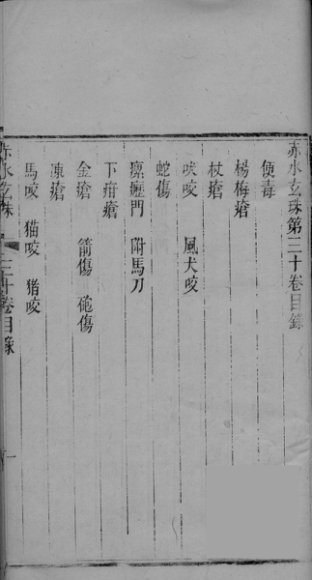 赤水玄珠第三十卷目錄
便毒
楊梅瘡
杖瘡
犬咬　風犬咬
蛇傷
瘰癧門　附馬刀
下疳瘡
金瘡　箭傷　砲傷
凍瘡
馬咬　猫咬　猪咬
赤水玄珠　三十卷目錄　一